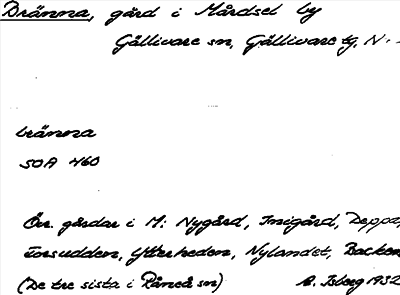 Dränna, gård i Mårdsel by
Gällivare sn, Gällivare tg, N.
bränna
SOA 460
Övr. gårdar i M: Nygård, Innigård, Deppa,
Forsudden, Ytterheden, Nylandet, Backen
(De tre sista i Råneå sn) A. Isberg 1932